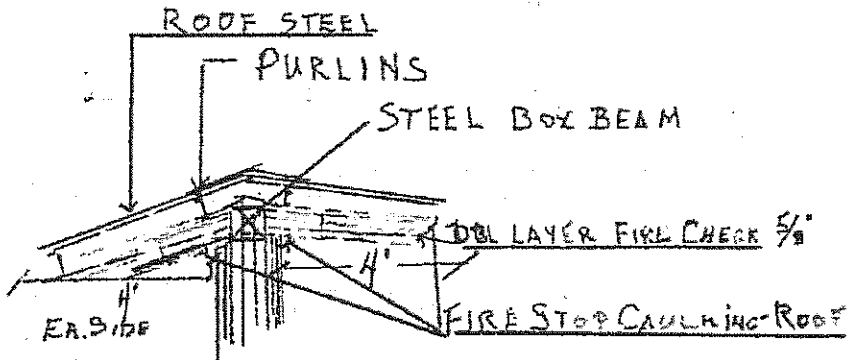 ROOF STEEL
PURLINS
STEEL BOX BEAM
DBL LAYER FIRE CHECK 5/8"
4'
4'
EA. SIDE
FIRE STOP CAULKING-ROOF